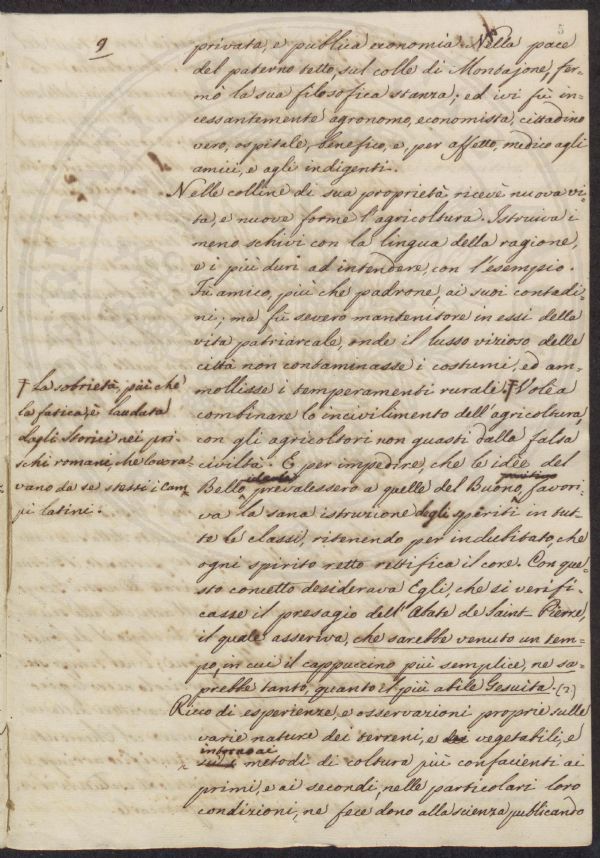 9
5
privata, e publica economia. Nella pace
del paterno tetto, sul colle di Monsajone, fer-
mò la sua filosofica stanza; ed ivi fù in-
cessantemente agronomo, economista, cittadino
vero, ospitale, benefico, e, per affetto, medico agli
amici, e agli indigenti.
Nelle colline di sua proprietà riceve nuova vi-
ta, e nuove forme l'agricoltura. Istruiva i
meno schivi con la lingua della ragione,
e i più duri ad intendere, con l'esempio.
Fù amico, più che padrone, ai suoi contadi-
ni; ma fù severo mantenitore in essi della
vita patriarcale, onde il lusso vizioso delle
città non contaminasse i costumi, ed am-
mollisse i temperamenti rurali. † Volea
combinare lo incivilimento dell'agricoltura,
con gli agricoltori non guasti dalla falsa
civiltà. E per impedire, che le idee del
Bello prevalessero a quelle del Buono, favori-
va la sana istruzione degli spiriti in tut-
te le classi, ritenendo per indubitato, che
ogni spirito retto rettifica il core. Con que-
sto concetto desiderava Egli, che si verifi-
casse il presagio dell'Abate de Saint-Pierre,
il quale asseriva, che sarebbe venuto un tem-
po, in cui il cappuccino più semplice, ne sa-
prebbe tanto, quanto il più abile Gesuita. (2)
Ricco di esperienze, e osservazioni proprie sulle
varie nature dei terreni, e dei vegetabili, e
intorno ai
metodi di coltura più confacienti ai
primi, e ai secondi, nelle particolari loro
condizioni, ne fece dono alla scienza publicando
† La sobrietà, più che
la fatica, è laudata
dagli Storici nei pri-
schi romani, che lavora-
vano da se stessi i cam-
pi latini.